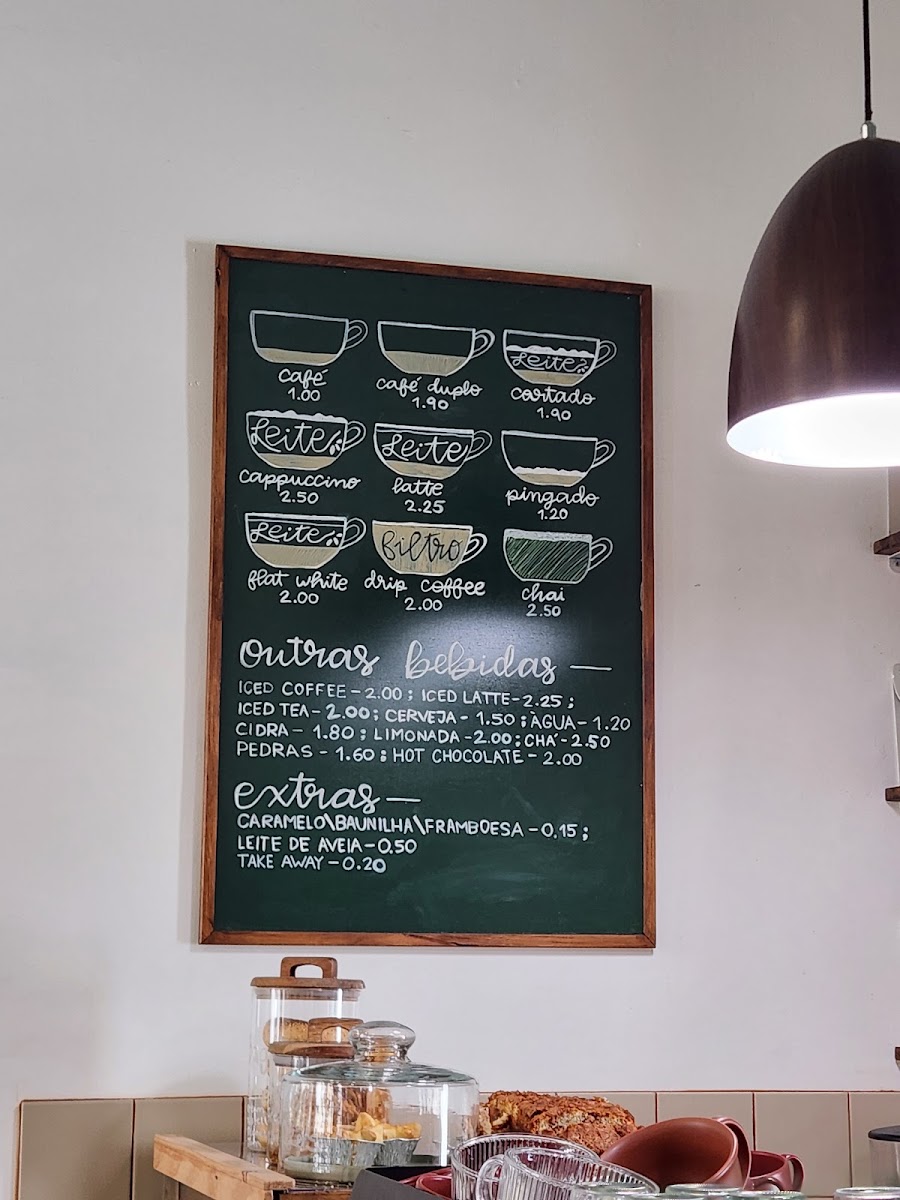 café
1.00
café duplo
1.90
Leite
cortado
1.90
Leite
cappuccino
2.50
Leite
latte
2.25
pingado
1.20
Leite
flat white
2.00
filtro
drip coffee
2.00
chai
2.50
outras bebidas —
ICED COFFEE - 2.00 ; ICED LATTE - 2.25 ;
ICED TEA - 2.00 ; CERVEJA - 1.50 ; ÁGUA - 1.20
CIDRA - 1.80 ; LIMONADA - 2.00 ; CHÁ - 2.50
PEDRAS - 1.60 ; HOT CHOCOLATE - 2.00
extras —
CARAMELO\BAUNILHA\FRAMBOESA - 0.15 ;
LEITE DE AVEIA - 0.50
TAKE AWAY - 0.20